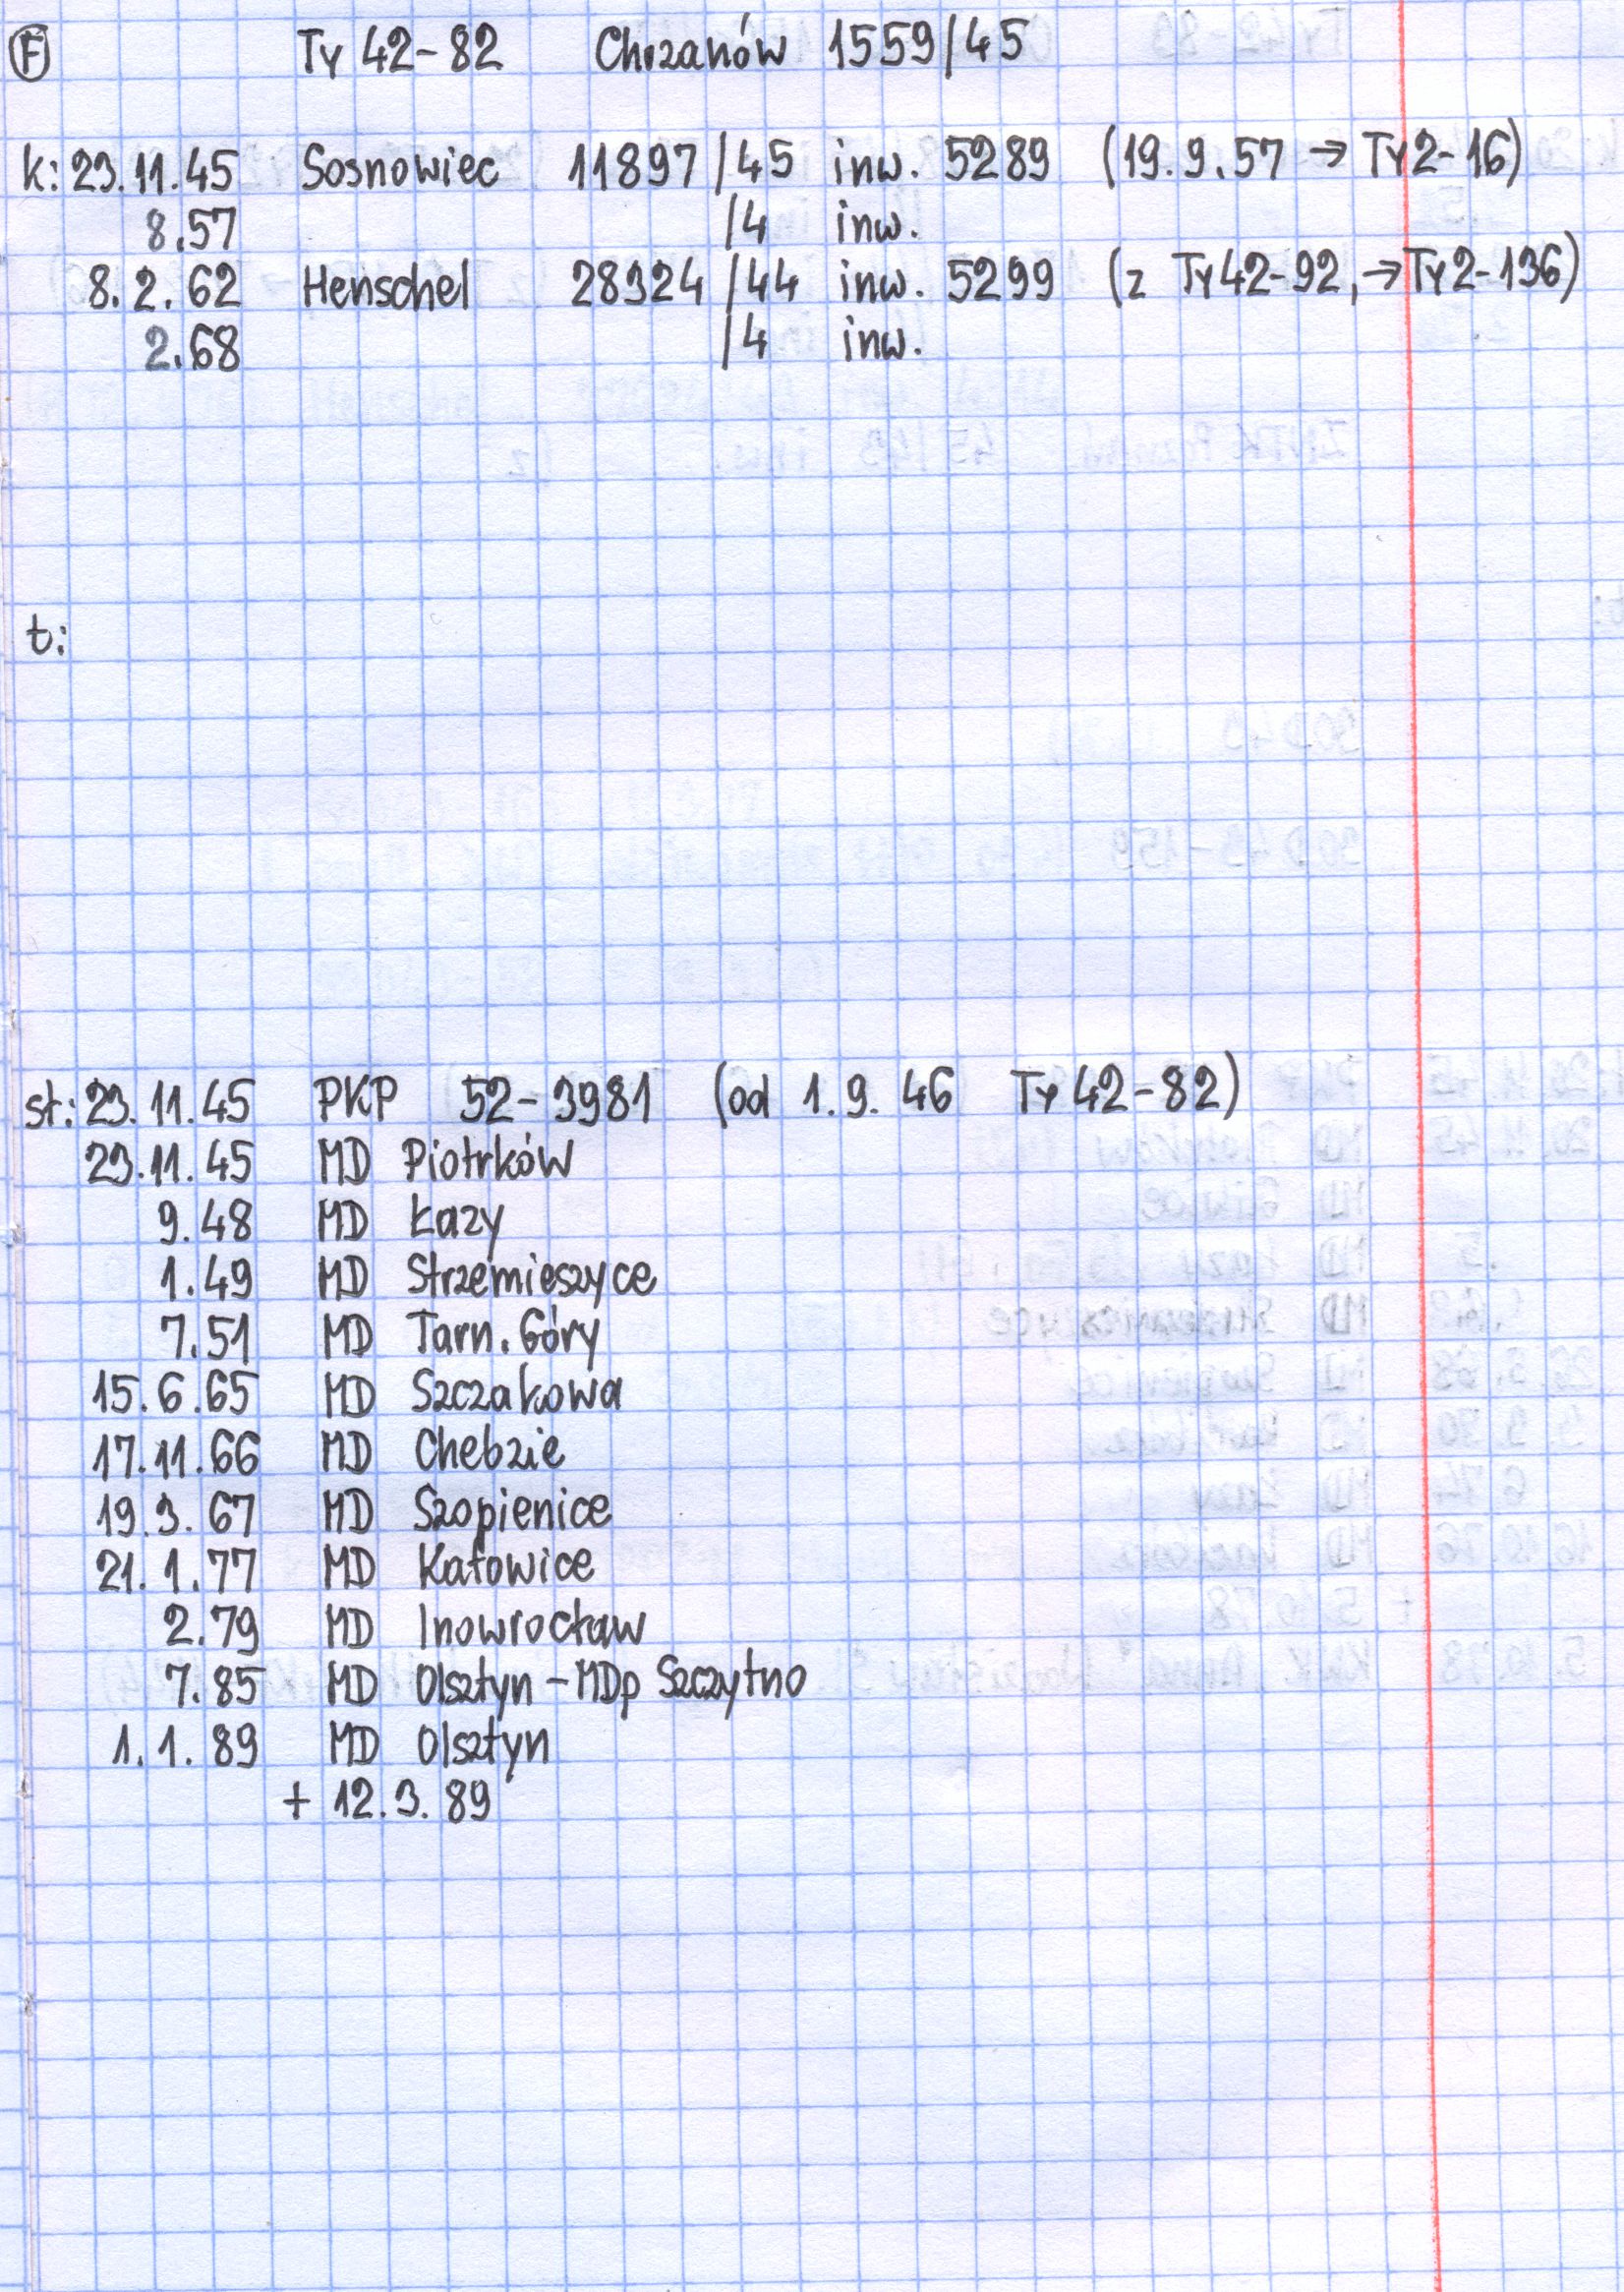 F Ty 42-82 Chrzanów 1559/45
k: 23.11.45 Sosnowiec 11897/45 inw. 5289 (19.9.57 → Ty2-16)
8.57 /4 inw.
8.2.62 Henschel 28324/44 inw. 5299 (z Ty42-92, → Ty2-136)
2.68 /4 inw.
t:
st: 23.11.45 PKP 52-3981 (od 1.9.46 Ty 42-82)
23.11.45 MD Piotrków
9.48 MD Łazy
1.49 MD Strzemieszyce
7.51 MD Tarn. Góry
15.6.65 MD Szczakowa
17.11.66 MD Chebzie
19.3.67 MD Szopienice
21.1.77 MD Katowice
2.79 MD Inowrocław
7.85 MD Olsztyn - MDp Szczytno
1.1.89 MD Olsztyn
+ 12.3.89